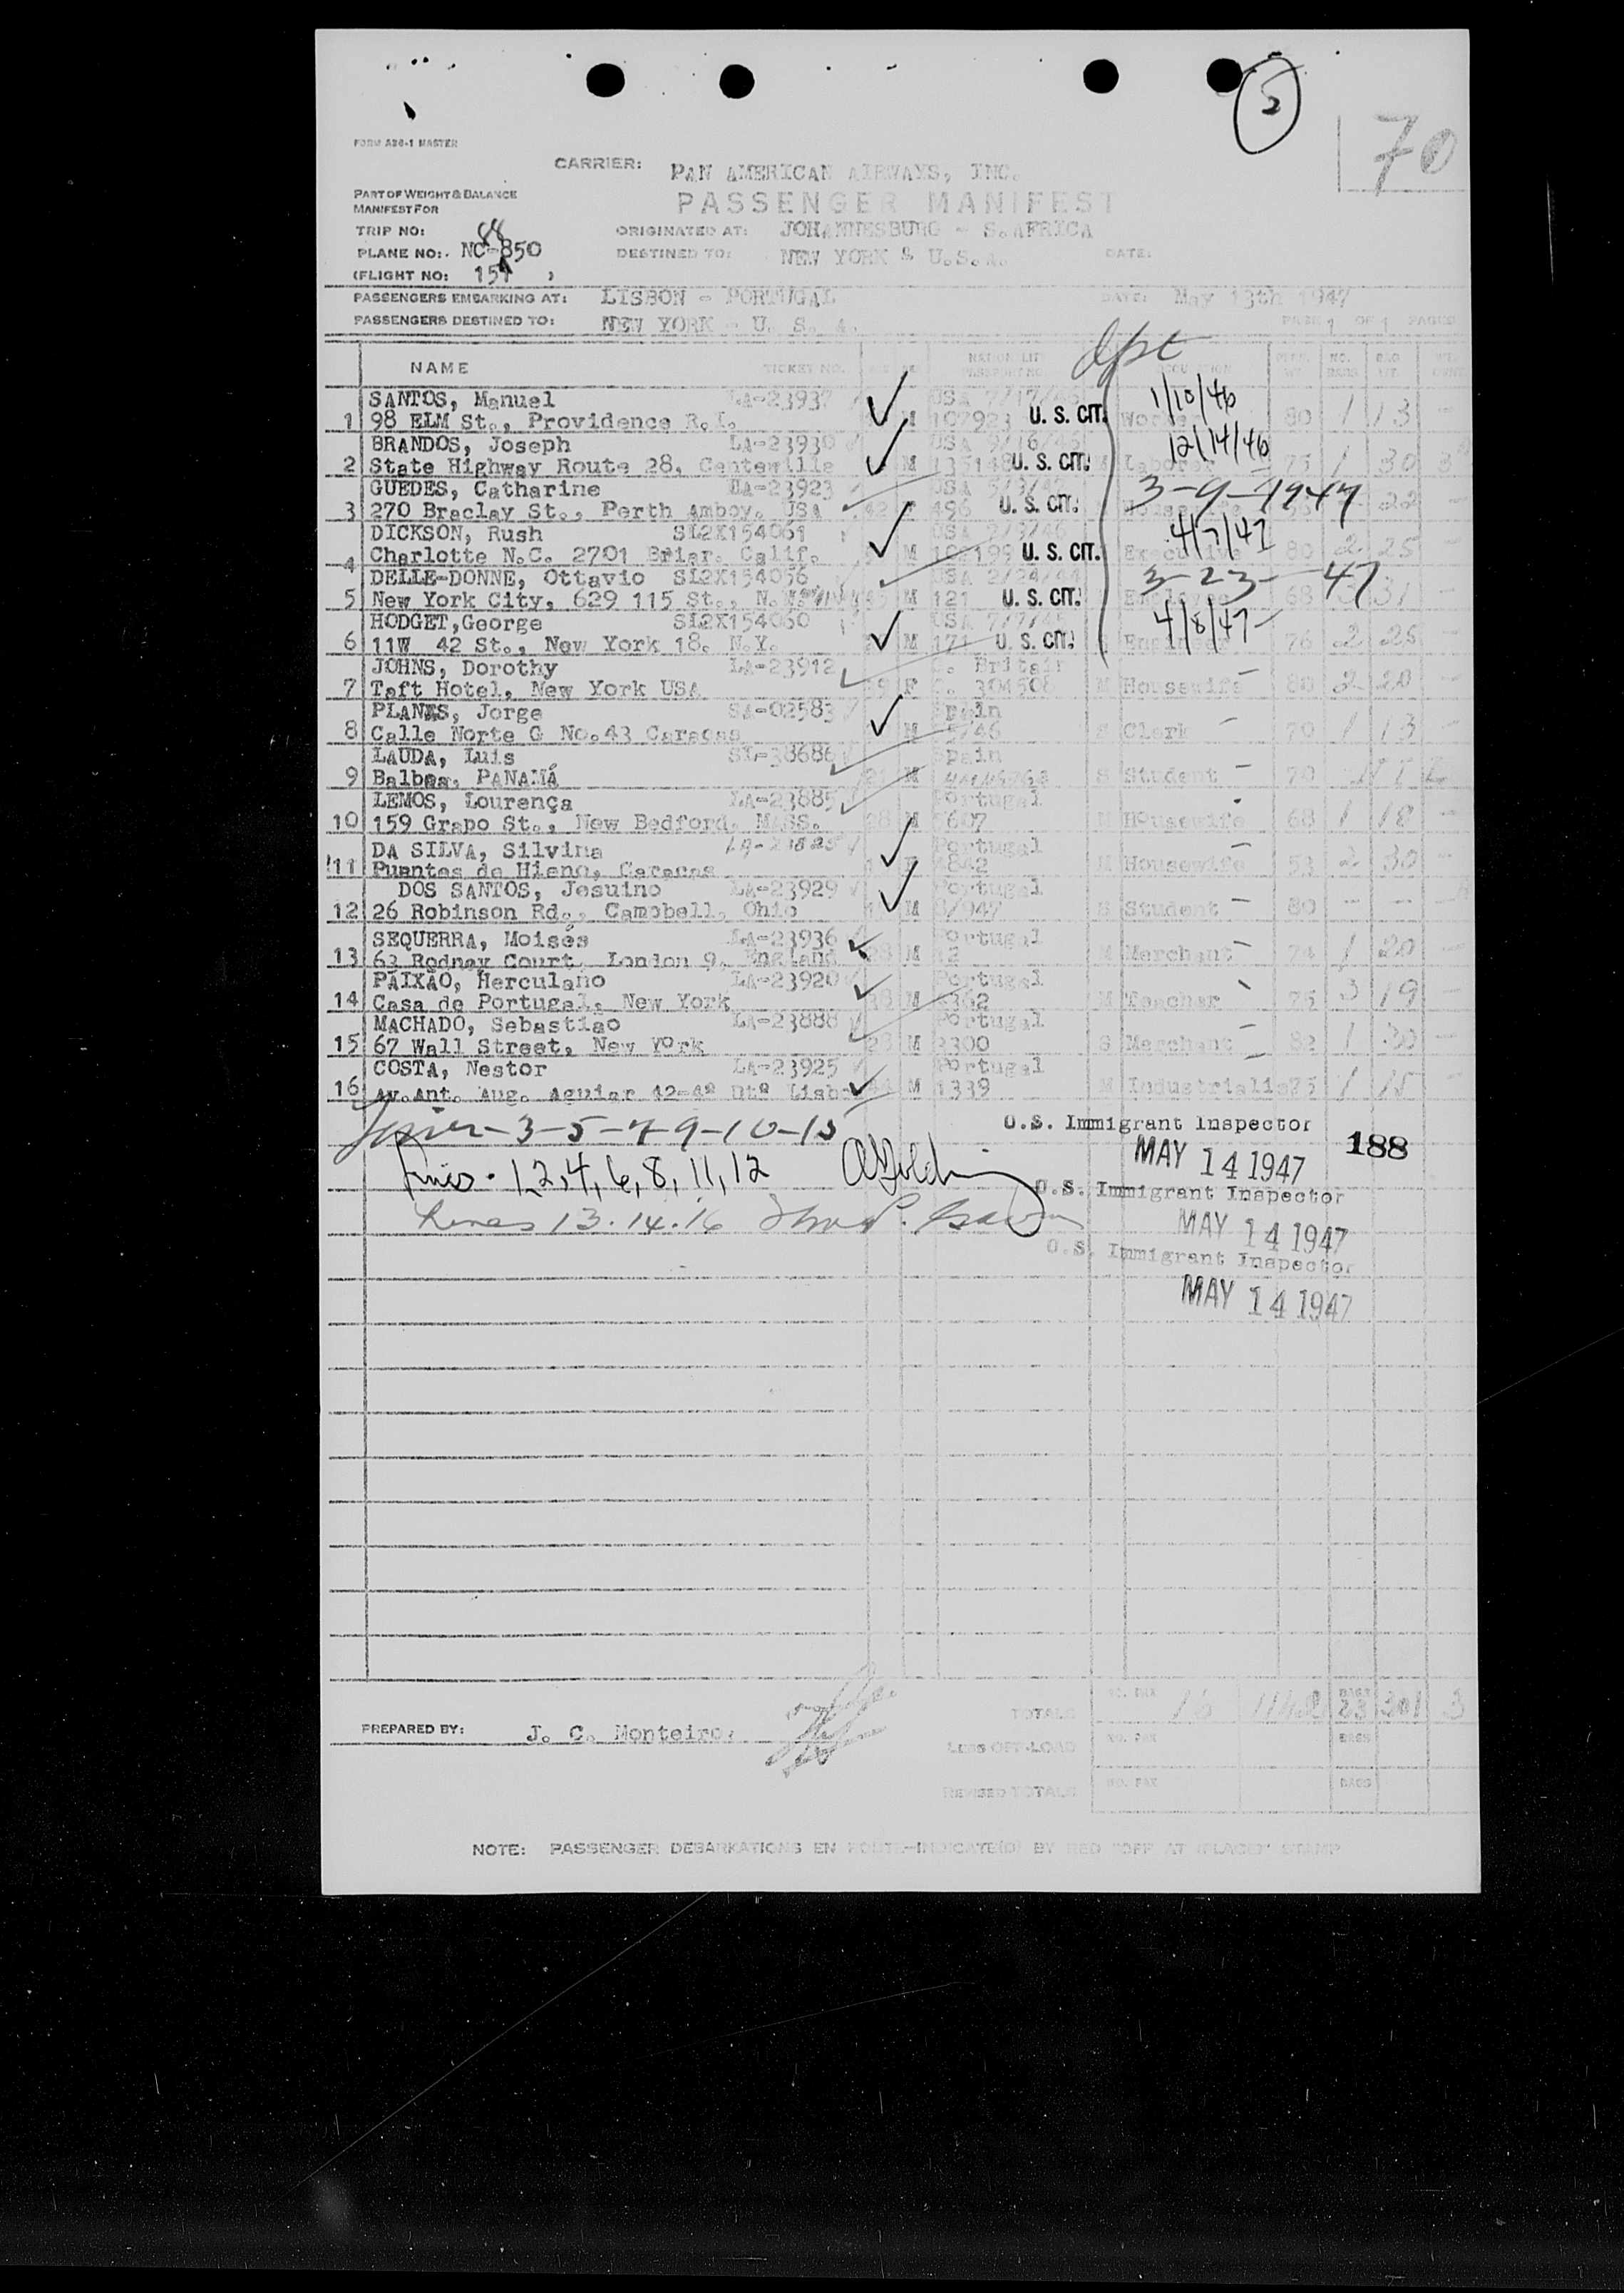 5
70
FORM A86-1 MASTER
CARRIER: PAN AMERICAN AIRWAYS, INC.
PART OF WEIGHT & BALANCE
MANIFEST FOR
PASSENGER MANIFEST
TRIP NO: 88
ORIGINATED AT: JOHANNESBURG - S. AFRICA
PLANE NO: NC-850
DESTINED TO: NEW YORK & U.S.A. DATE:
(FLIGHT NO: 151 )
PASSENGERS EMBARKING AT: LISBON - PORTUGAL DATE: May 13th 1947
PASSENGERS DESTINED TO: NEW YORK - U. S. A. PAGE 1 OF 1 PAGES
dpt
NAME TICKET NO.
SANTOS, Manuel LA-23937 USA 7/17/46 1/10/46
1 98 ELM St., Providence R.I. M 107923 U. S. CIT. Worker 80 1 13 -
BRANDOS, Joseph LA-23930 USA 9/16/46 12/14/46
2 State Highway Route 28, Centewille M 135148 U. S. CIT. M Laborer 75 1 30 3
GUEDES, Catharine LA-23923 USA 3-9-1947
3 270 Braclay St., Perth Amboy, USA 496 U. S. CIT. Housewife 22 -
DICKSON, Rush SL2X154061 USA 4/7/47
4 Charlotte N.C. 2701 Briar. Calif. M U. S. CIT. Executive 80 2 25 -
DELLE-DONNE, Ottavio SL2X154056 USA 2/24/44 3-23-47
5 New York City, 629 115 St., N.Y. M 121 U. S. CIT. Employee 68 3 31 -
HODGET,George SL2X154060 USA 4/8/47-
6 11W 42 St., New York 18. N.Y. M 171 U. S. CIT. Engineer 76 2 25 -
JOHNS, Dorothy LA-23912 G. Britain
7 Taft Hotel, New York USA F 304508 M Housewife 80 2 20 -
PLANAS, Jorge SA-02583 Spain
8 Calle Norte G No.43 Caracas M 5/46 S Clerk 70 1 13 -
LAUDA, Luis SL-38686 Spain
9 Balboa, PANAMÁ 21 M S Student 70
LEMOS, Lourença LA-23885 Portugal
10 159 Grapo St., New Bedford, MASS. 28 M 5607 M Housewife 68 1 18 -
DA SILVA, Silvina LA-23825 Portugal
11 Puantes de Hieno, Caracas F 4842 M Housewife 53 2 30 -
DOS SANTOS, Jesuino LA-23929 Portugal
12 26 Robinson Rd., Campbell, Ohio M 8/947 S Student 80 - - -
SEQUERRA, Moisés LA-23936 Portugal
13 63 Rodney Court, London 9, England M 12 M Merchant 74 1 20 -
PAIXÃO, Herculano LA-23920 Portugal
14 Casa de Portugal, New York 38 M 5362 M Teacher 75 3 19 -
MACHADO, Sebastiao LA-23888 Portugal
15 67 Wall Street, New York 23 M 2300 S Merchant 82 1 30 -
COSTA, Nestor LA-23925 Portugal
16 Av.Ant. Aug. Aguiar 42-4º Dtº Lisbo M 1339 M Industrialis 75 1 15 -
3-5-7-9-10-15 U.S. Immigrant Inspector
MAY 14 1947 188
Lines. 1,2,4,6,8,11,12 U.S. Immigrant Inspector
Lines 13.14.16 MAY 14 1947
U.S. Immigrant Inspector
MAY 14 1947
TOTALS NO. PAX 16 1142 BAGS 23 301 3
PREPARED BY: J. C. Monteiro.
LESS OFF-LOAD NO. PAX BAGS
REVISED TOTALS NO. PAX BAGS
NOTE: PASSENGER DEBARKATIONS EN ROUTE-INDICATE(D) BY RED "OFF AT (PLACE)" STAMP